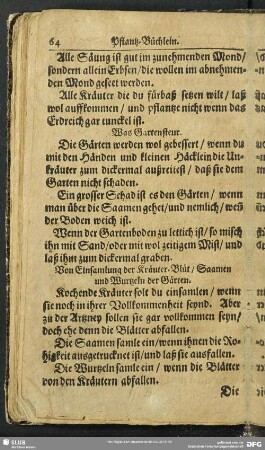 64 Pflantz-Büchlein.
Alle Säung ist gut im zunehmenden Mond/
sondern allein Erbsen/die wollen im abnehmen-
den Mond gesetzt werden.
Alle Kräuter die du fürbaß setzen wilt/ laß
wol auffkommen/ und pflantze nicht wenn das
Erdreich gar tunckel ist.
Was Gartensteur.
Die Gärten werden wol gebessert/ wenn du
mit den Händen und kleinen Häcklein die Un-
kräuter zum dickermal außreiiest/ daß sie dem
Garten nicht schaden.
Ein grosser Schad ist es den Gärten/ wenn
man über die Saamen gehet/und nemlich/weñ
der Boden weich ist.
Wenn der Gartenboden zu lettich ist/so misch
ihn mit Sand/oder mit wol zeitigem Mist/ und
laß ihm zum dickermal graben.
Von Einsamlung der Kräuter-Blüt/ Saamen
und Wurtzeln der Gärten.
Kochende Kräuter solt du einsamlen/ wenn
sie noch in ihrer Vollkommenheit seynd. Aber
zu der Artzney sollen sie gar vollkommen seyn/
doch ehe denn die Blätter abfallen.
Die Saamen samle ein/wenn ihnen die Ro-
higkeit ausgetrucknet ist/und laß sie ausfallen.
Die Wurtzeln samle ein / wenn die Blätter
von den Kräutern abfallen.
Die
SLUB
DFG